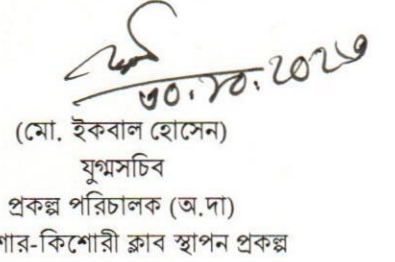 ৩০.১০.২০২৩
(মো. ইকবাল হোসেন)
যুগ্মসচিব
প্রকল্প পরিচালক (অ.দা)
শোর-কিশোরী ক্লাব স্থাপন প্রকল্প